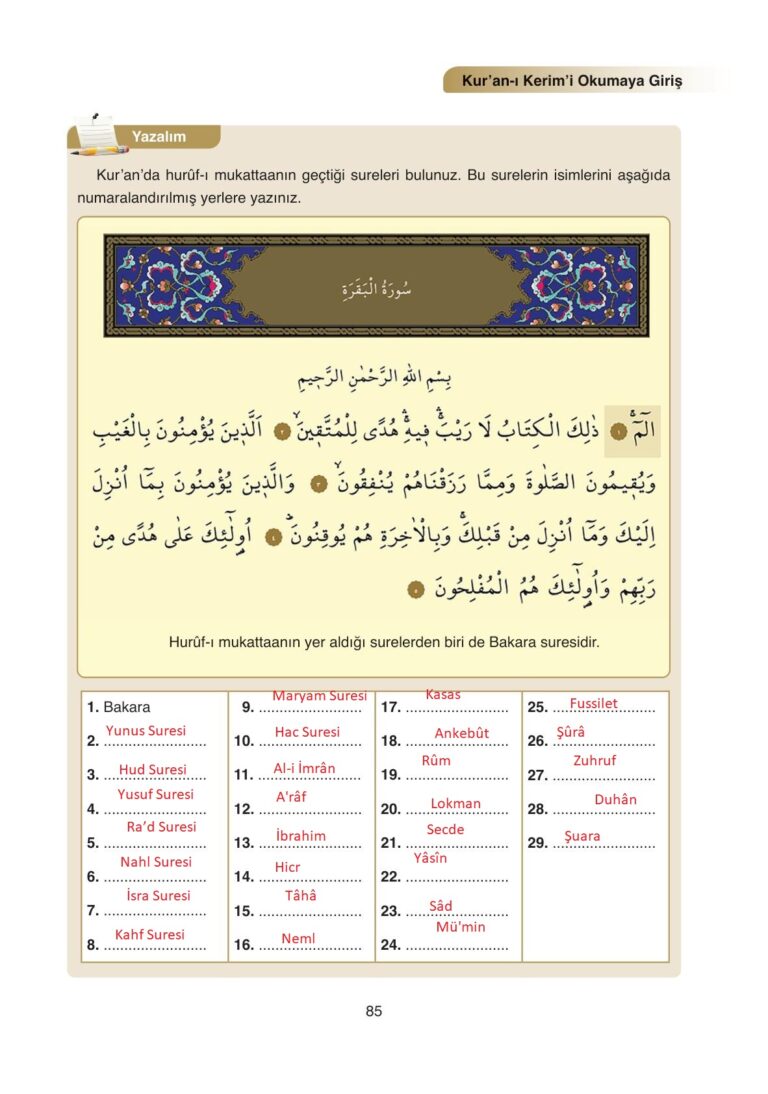 Kur’an-ı Kerim’i Okumaya Giriş
Yazalım
Kur’an’da hurûf-ı mukattaanın geçtiği sureleri bulunuz. Bu surelerin isimlerini aşağıda
numaralandırılmış yerlere yazınız.
سُورَةُ الْبَقَرَةِ
بِسْمِ اللّٰهِ الرَّحْمٰنِ الرَّح۪يمِ
الٓمٓۚ ﴿١﴾ ذٰلِكَ الْكِتَابُ لَا رَيْبَۚۛ ف۪يهِۚۛ هُدًى لِلْمُتَّق۪ينَۙ ﴿٢﴾ اَلَّذ۪ينَ يُؤْمِنُونَ بِالْغَيْبِ
وَيُق۪يمُونَ الصَّلٰوةَ وَمِمَّا رَزَقْنَاهُمْ يُنْفِقُونَۙ ﴿٣﴾ وَالَّذ۪ينَ يُؤْمِنُونَ بِمَٓا اُنْزِلَ
اِلَيْكَ وَمَٓا اُنْزِلَ مِنْ قَبْلِكَۚ وَبِالْاٰخِرَةِ هُمْ يُوقِنُونَۜ ﴿٤﴾ اُو۬لٰٓئِكَ عَلٰى هُدًى مِنْ
رَبِّهِمْ وَاُو۬لٰٓئِكَ هُمُ الْمُفْلِحُونَ ﴿٥﴾
Hurûf-ı mukattaanın yer aldığı surelerden biri de Bakara suresidir.
1. Bakara
2. Yunus Suresi
3. Hud Suresi
4. Yusuf Suresi
5. Ra’d Suresi
6. Nahl Suresi
7. İsra Suresi
8. Kahf Suresi
9. Maryam Suresi
10. Hac Suresi
11. Al-i İmrân
12. A'râf
13. İbrahim
14. Hicr
15. Tâhâ
16. Neml
17. Kasas
18. Ankebût
19. Rûm
20. Lokman
21. Secde
22. Yâsîn
23. Sâd
24. Mü'min
25. Fussilet
26. Şûrâ
27. Zuhruf
28. Duhân
29. Şuara
85